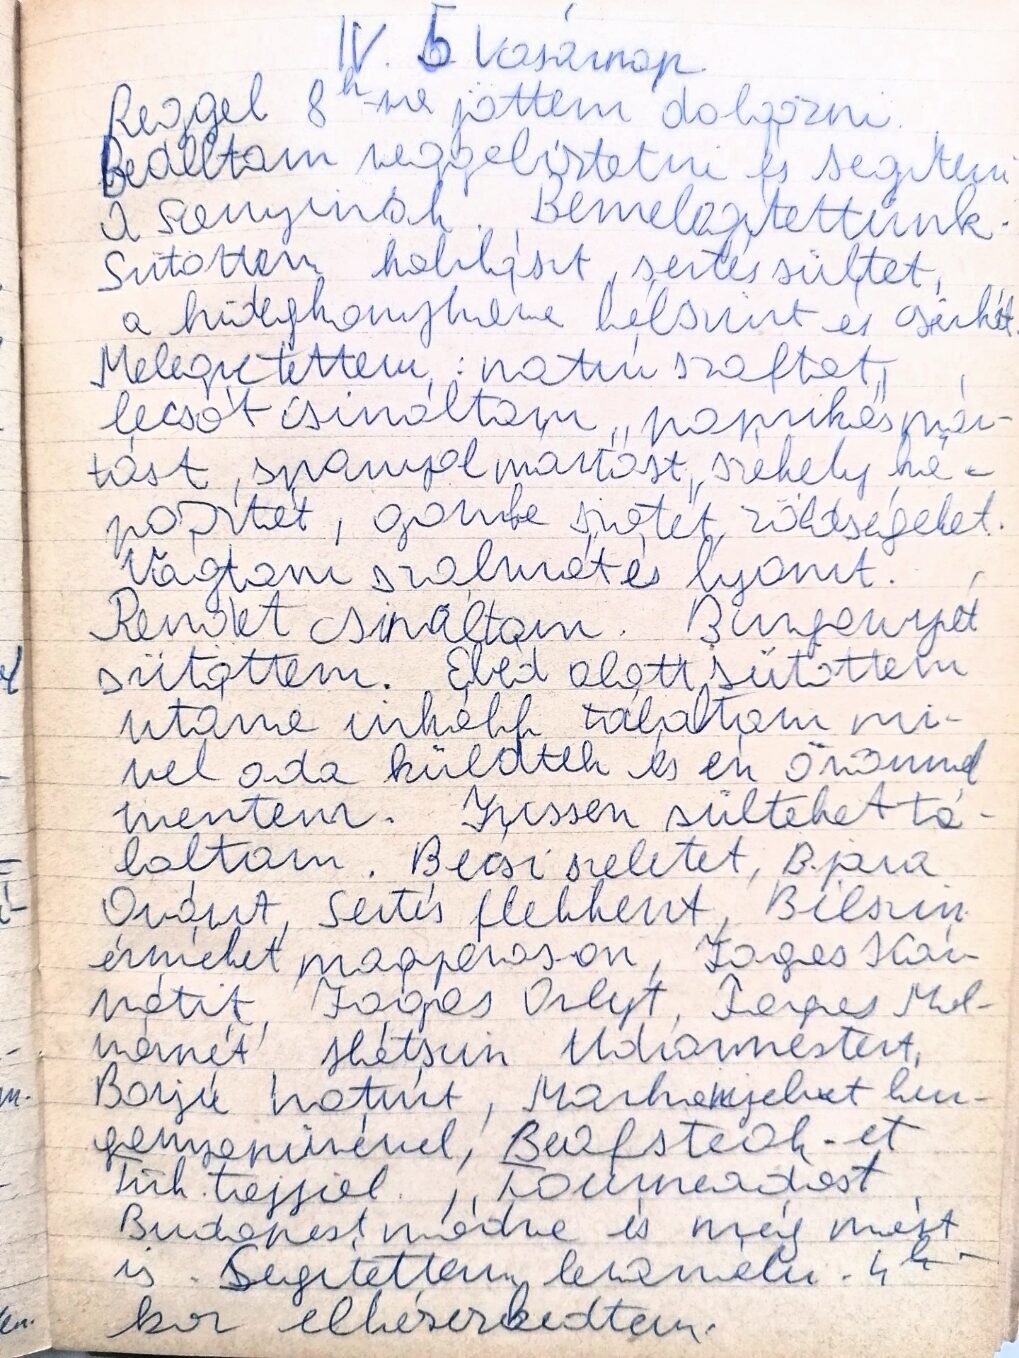 IV. 5 Vasárnap
Reggel 8h-ra jöttem dolgozni.
Beálltam reggeliztetni és segíteni
a Sanyinak. Bemelegítettünk.
Sütöttem kolbászt, sertés sültet,
a hidegkonyhára bélszint és csirkét.
Melegitettem: natúr szaftot,
lecsót csináltam, paprikás már-
tást, spanyol mártást, székely ká-
posztát, gomba szótét, zöldségeket.
Vágtam szalmát és lyoni.
Rendet csináltam. Burgonyát
sütöttem. Ebéd alatt sütöttem
utána inkább tálaltam mi-
vel oda küldtek és én örömmel
mentem. Frissen sülteket tá-
laltam. Bécsi szeletet, B.pára
Oránt, Sertés flekkent, Bélszin
érméket magyaroson, Fogas Kár-
nátit, Fogas Orlyt, Fogas Mol-
nárnét, Udvarmestert,
Borjú natúrt, Marha bur-
gonyapürével, Beafsteak-et
Tük. tojással, Tournedost
Budapest módra és még mást
is. Segítettem leszámolni. 4h-
kor elkészerkedtem.